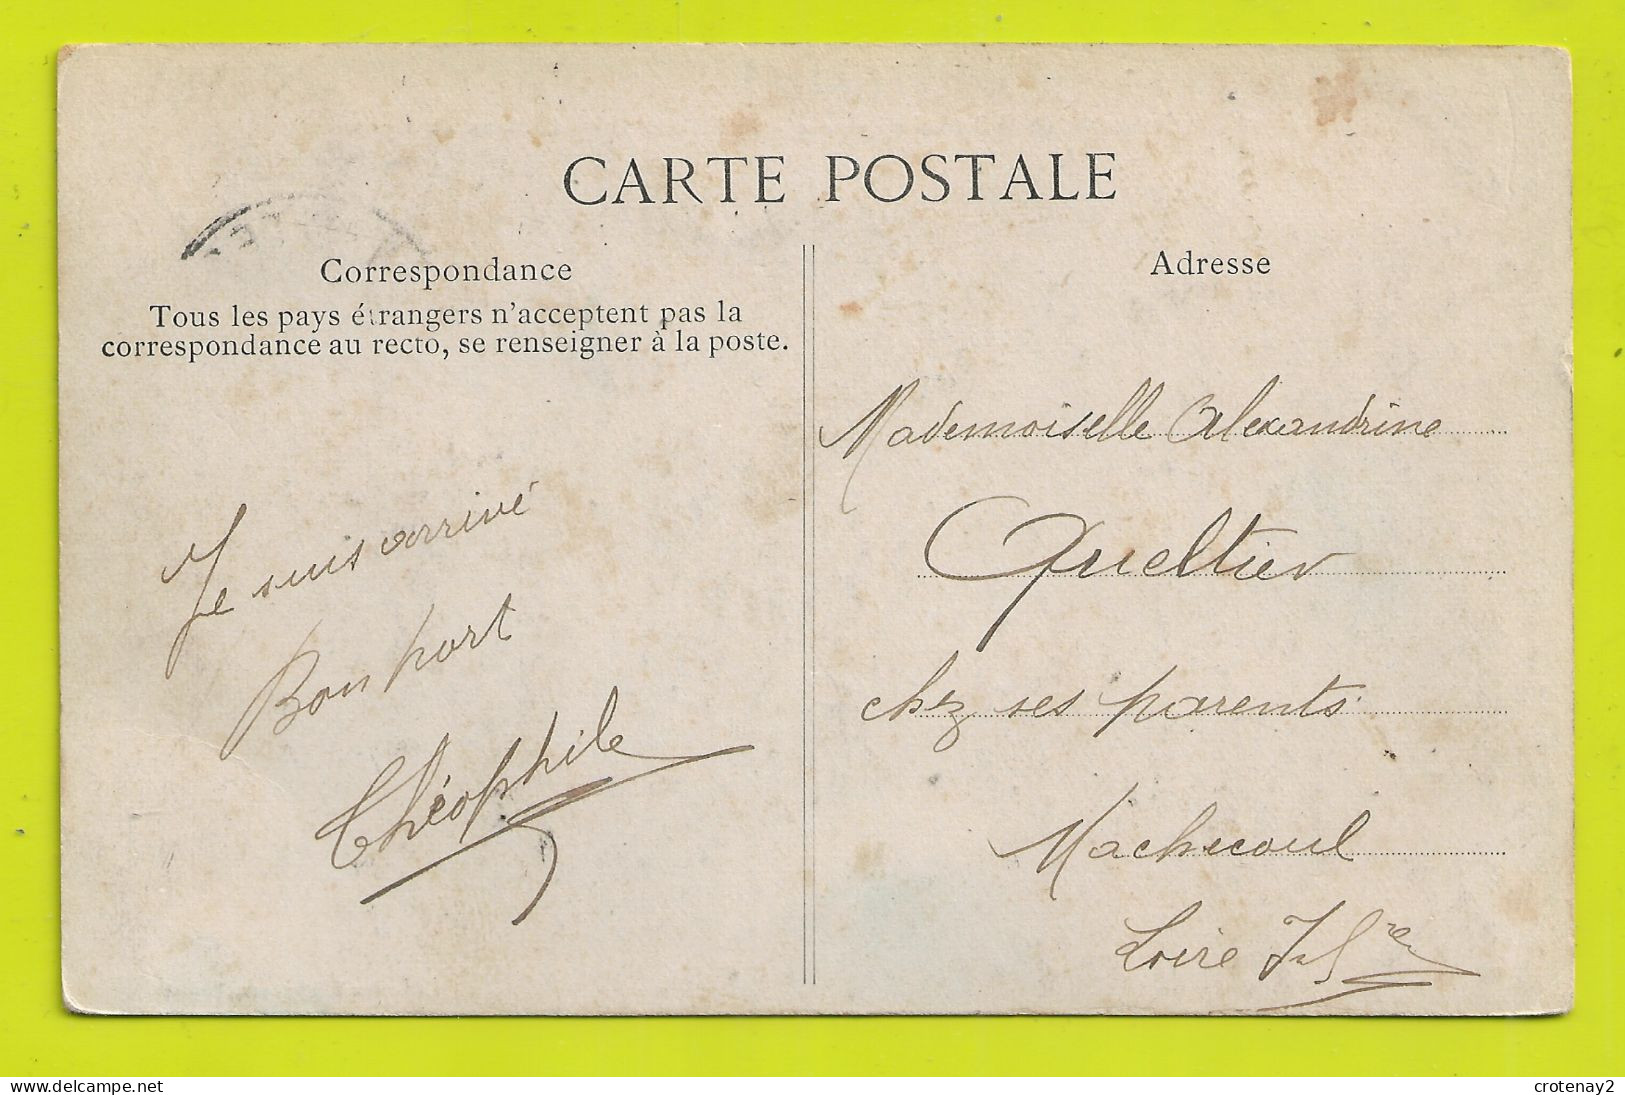 CARTE POSTALE
Correspondance
Tous les pays étrangers n'acceptent pas la
correspondance au recto, se renseigner à la poste.
Je suis arrivé
Bon port
Théophile
Adresse
Mademoiselle Alexandrine
Queltier
chez ses parents
Machecoul
Loire Infre
www.delcampe.net
crotenay2